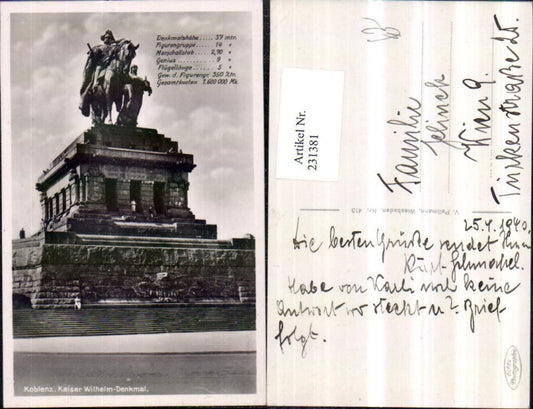 Denkmalshöhe..... 37 mtr.
Figurengruppe.... 14 "
Marschallstab.... 2,90 "
Genius........... 9 "
Flügellänge...... 5 "
Gew. d. Figurengr. 350 Ztr.
Gesamtkosten 1.600 000 Mk.
Koblenz. Kaiser Wilhelm-Denkmal.
Artikel Nr.
231381
Familie
Jelinek
Wien 9.
Türkenstrasse
V. Pellmann, Wiesbaden, Nr. 415
25.4.1940.
Die besten Grüsse sendet
Habe von Karli noch keine
Antwort wo steckt er? Brief
folgt.